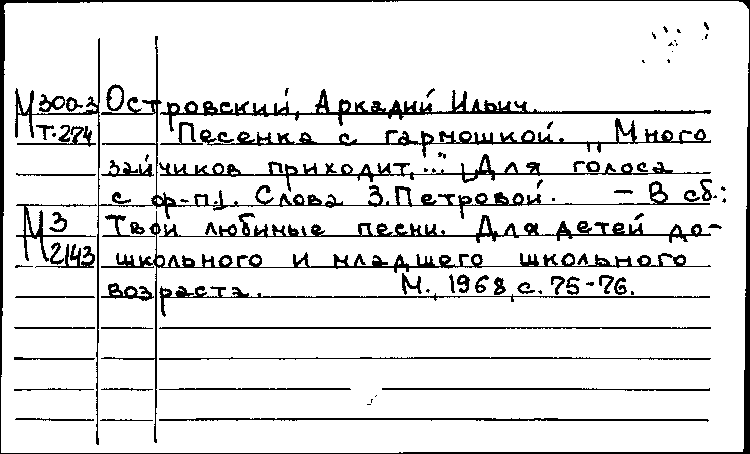 М 300-3 Островский, Аркадий Ильич.
Т-274 Песенка с гармошкой. „Много
зайчиков приходит,..." [Для голоса
с ф-п]. Слова З.Петровой. — В сб.:
М 3 Твои любимые песни. Для детей до-
2143 школьного и младшего школьного
возраста. М., 1968, с. 75-76.